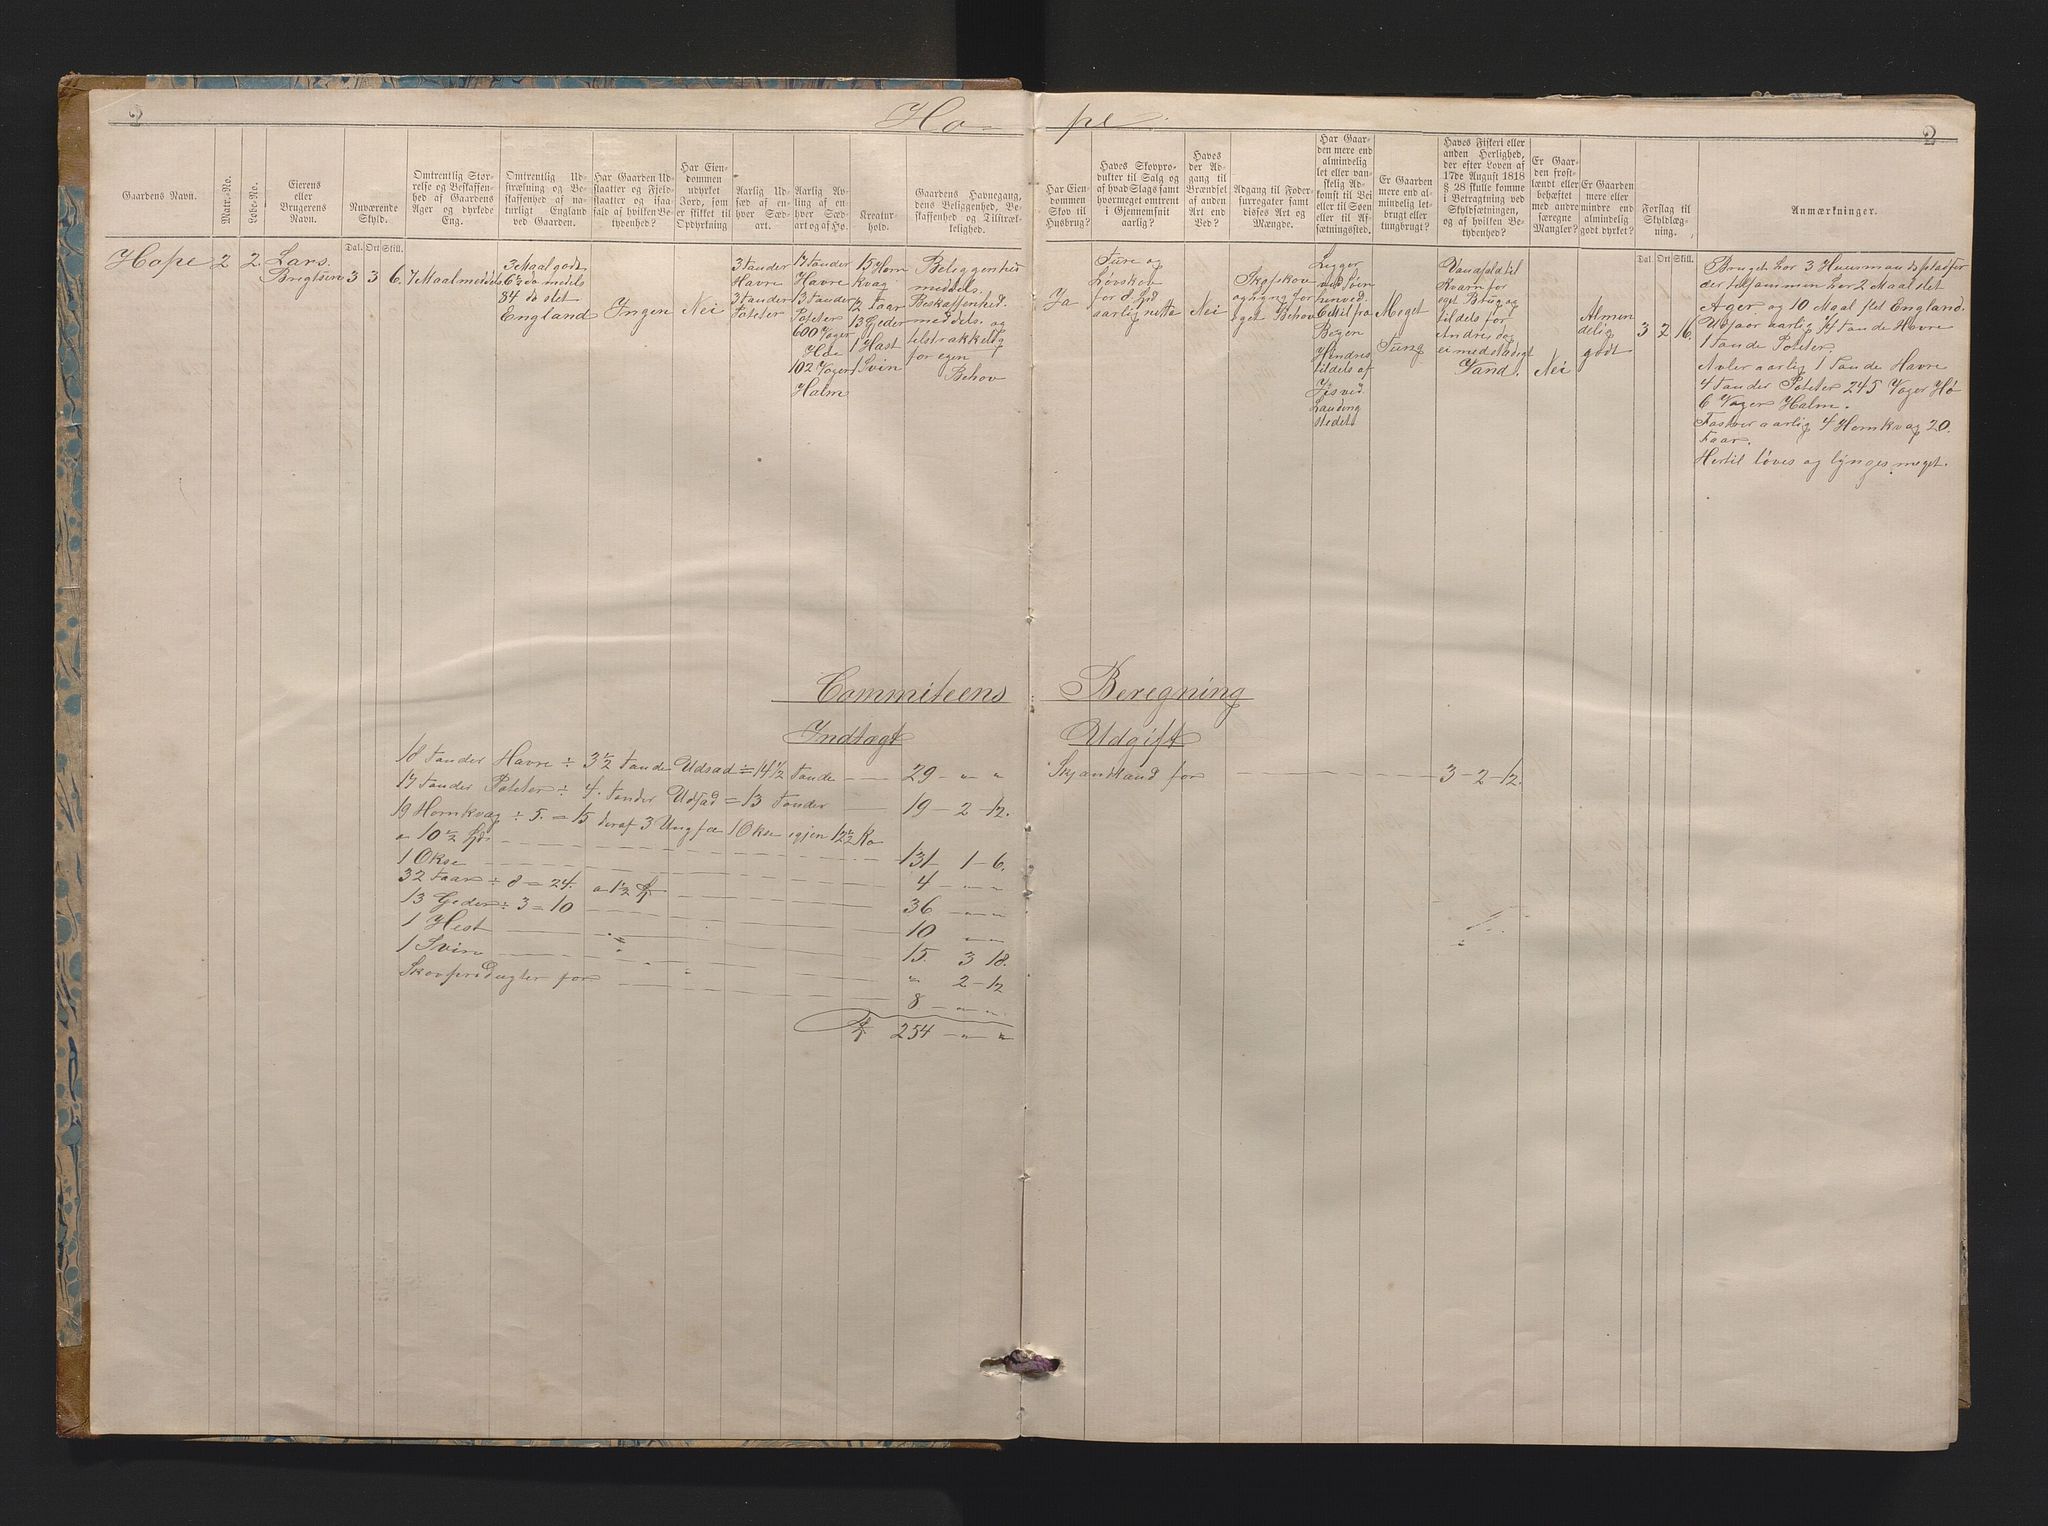 2
Ho-
pe.
2
Gaardens Navn.
Matr.-No.
Løbe-No.
Eierens
eller
Brugerens
Navn.
Nuværende
Skyld.
Omtrentlig Stor-
relse og Beskaffen-
hed af Gaardens
Ager og dyrkede
Eng.
Omtrentlig Ud-
strækning og Be-
skaffenhed af na-
turligt England
ved Gaarden.
Har Gaarden Ud-
slaatter og Fjeld-
slaatter og isaa-
fald af hvilken Be-
tydenhed?
Har Eien-
dommen
udyrket
Jord, som
er skikket til
Opdyrkning
Aarlig Ud-
sæd af en-
hver Sæd-
art.
Aarlig Av-
ling af en-
hver Sæd-
art og af Hø.
Kreatur-
hold.
Gaardens Havnegang,
dens Beliggenhed, Be-
skaffenhed og Tilstræk-
kelighed.
Har Eien-
dommen
Skov til
Husbrug?
Haves Skovpro-
dukter til Salg og
af hvad Slags samt
hvormeget omtrent
i Gjennemsnit
aarlig?
Haves
der Ad-
gang til
Brændsel
af anden
Art end
Ved?
Adgang til Foder-
surrogater samt
disses Art og
Mængde.
Har Gaar-
den mere end
almindelig
let eller van-
skelig Ad-
komst til Bei
eller til Søen
eller til Af-
sætningssted.
Er Gaarden
mere end al-
mindelig let-
brugt eller
tungbrugt?
Haves Fiskeri eller
anden Herlighed,
der efter Loven af
17de August 1818
§ 28 skulle komme
i Betragtning ved
Skyldsætningen,
og af hvilken Be-
tydenhed?
Er Gaar-
den frost-
lændt eller
behæftet
med andre
særegne
Mangler?
Er Gaarden
mere eller
mindre end
almindelig
godt dyrket?
Forslag til
Skyldlæg-
ning.
Anmærkninger.
Dal. Ort Skill.
Dal. Ort Skill.
Hope 2 2. Lars
Brigtsen 3 3 6. 7 Maal meddels
3 Maal godt
6½ do meddels
84 do slet
England
Ingen
Nei
3 Tønder
Havre
3 Tønder
Poteter
17 Tønder
Havre
13 Tønder
Poteter
600 Vager
Høe
102 Vager
Halm
15 Horn
kvæg
12 Faar
13 Geder
1 Hest
1 Svin
Beliggenhed
meddels.
Beskaffenhed
meddels. og
tilstrækkelig
for egen
Behov
Ja
Fure og
Løvskov
for 8 Spd
aarlig netto
Nei
Skafskov
og Lyng for
eget Behov
Ligger
ved Søen
henved
6 Mil fra
Bergen
Hindres
tildels af
Iis ved
Landing
stedet
Meget
Tung
Vandfald til
Kværn for
eget Brug og
tildels for
Andre dog
ei medstadigt
Vand.
Nei
Almin
delig
godt
3 2 16.
Bruget har 3 Huusmandspladser
der tilsammen har 2 Maal slet
Ager og 10 Maal slet England.
Udsaar aarlig ½ Tønde Havre
1 Tønde Poteter.
Avler aarlig 1 Tønde Havre
4 Tønder Poteter 245 Vager Hø
6 Vager Halm.
Fostrer aarlig 4 Hornkvæg 20
Faar.
Hertil løves og lynges meget.
Commiteens Beregning
Indtægt
Udgift
18 Tønder Havre ÷ 3½ Tønde Udsæd = 14½ Tønde 29 – „ „
17 Tønder Poteter ÷ 4. Tønder Udsæd = 13 Tønder 19 – 2 – 12.
19 Hornkvæg ÷ 5. = 15. deraf 3 Ungfæ 1 Okse igjen 12½ Ko
a 10½ Spd 131 1 – 6.
1 Okse 4 – „ „
32 Faar ÷ 8 = 24. a 1½ Spd 36 – „ „
13 Geder ÷ 3 = 10 10 „ „
1 Hest 15. 3 18.
1 Svin „ 2 – 12
Skovprodugter for 8 – „ „
Spd 254 – „ „
Skjønsland for 3 – 2 – 12.